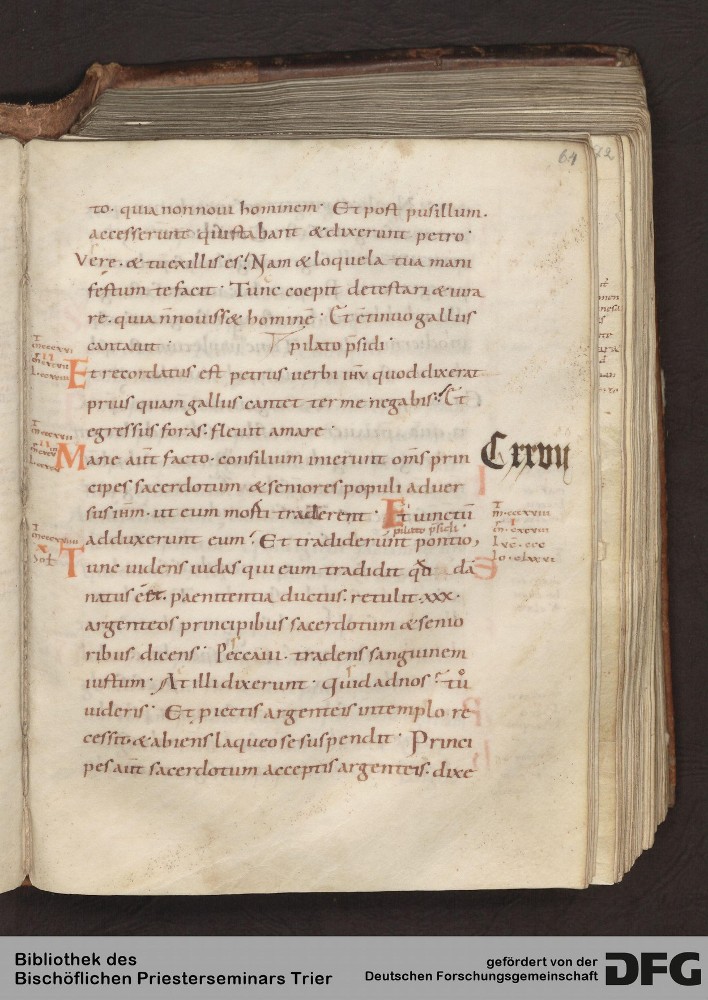 64
to. quia non novi hominem. Et post pusillum.
accesserunt qui stabant & dixerunt petro.
Vere. & tu ex illis es. Nam & loquela tua mani
festum te facit. Tunc coepit detestari & iura
re. quia n̄ noviss& hominē. Et c̄tinuo gallus
cantavit. pilato p̄sidi.
Et recordatus est petrus verbi ihu quod dixerat
prius quam gallus cantet ter me negabis. Et
egressus foras. flevit amare.
Mane aut̄ facto. consilium inierunt om̄s prin
cipes sacerdotum & seniores populi adver
sus ihm. ut eum morti traderent. Et vinctū
adduxerunt eum. Et tradiderunt pontio,
pilato p̄sidi.
Tunc videns iudas qui eum tradidit qđ dā
natus ēēt. paenitentia ductus. retulit .xxx.
argenteos principibus sacerdotum & senio
ribus dicens. Peccavi. tradens sanguinem
iustum. At illi dixerunt. Quid ad nos. tu
videris. Et proiectis argenteis in templo re
cessit. & abiens laqueo se suspendit. Princi
pes aut̄ sacerdotum acceptis argenteis. dixe
Cxxvii
Bibliothek des
Bischöflichen Priesterseminars Trier
gefördert von der
Deutschen Forschungsgemeinschaft
DFG